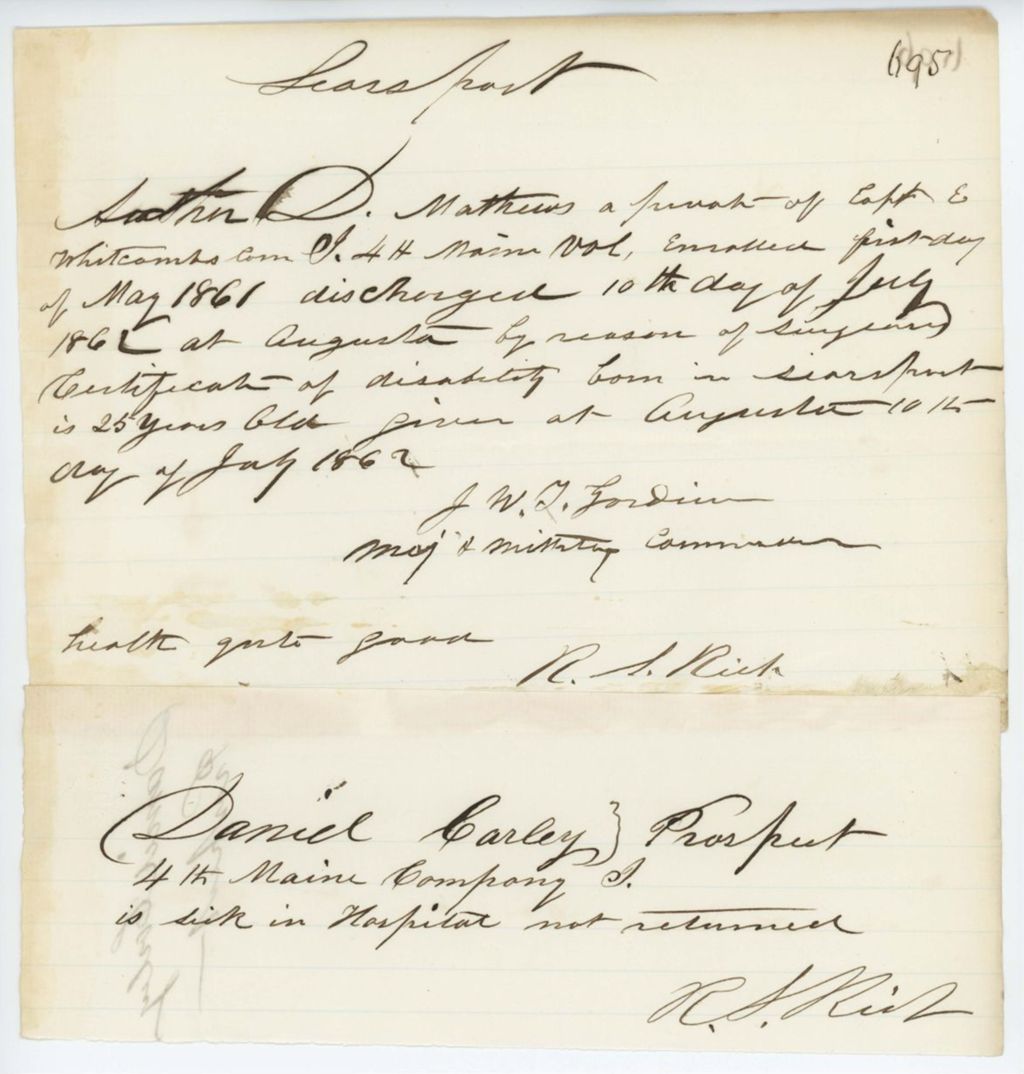 Searsport
695
D. Mathews a private of Capt E
Whitcombs Com I. 4th Maine Vol, Enrolled first day
of May 1861 discharged 10th day of July
1862 at Augusta by reason of surgeons
Certificate of disability Born in searsport
is 25 years Old given at Augusta 10th
day of July 1862
J W. T. Gardiner
Maj & Military Commander
health quite good
R. S. Rich
Daniel Carley } Prospect
4th Maine Company I.
is sick in Hospital not returned
R. S. Rich